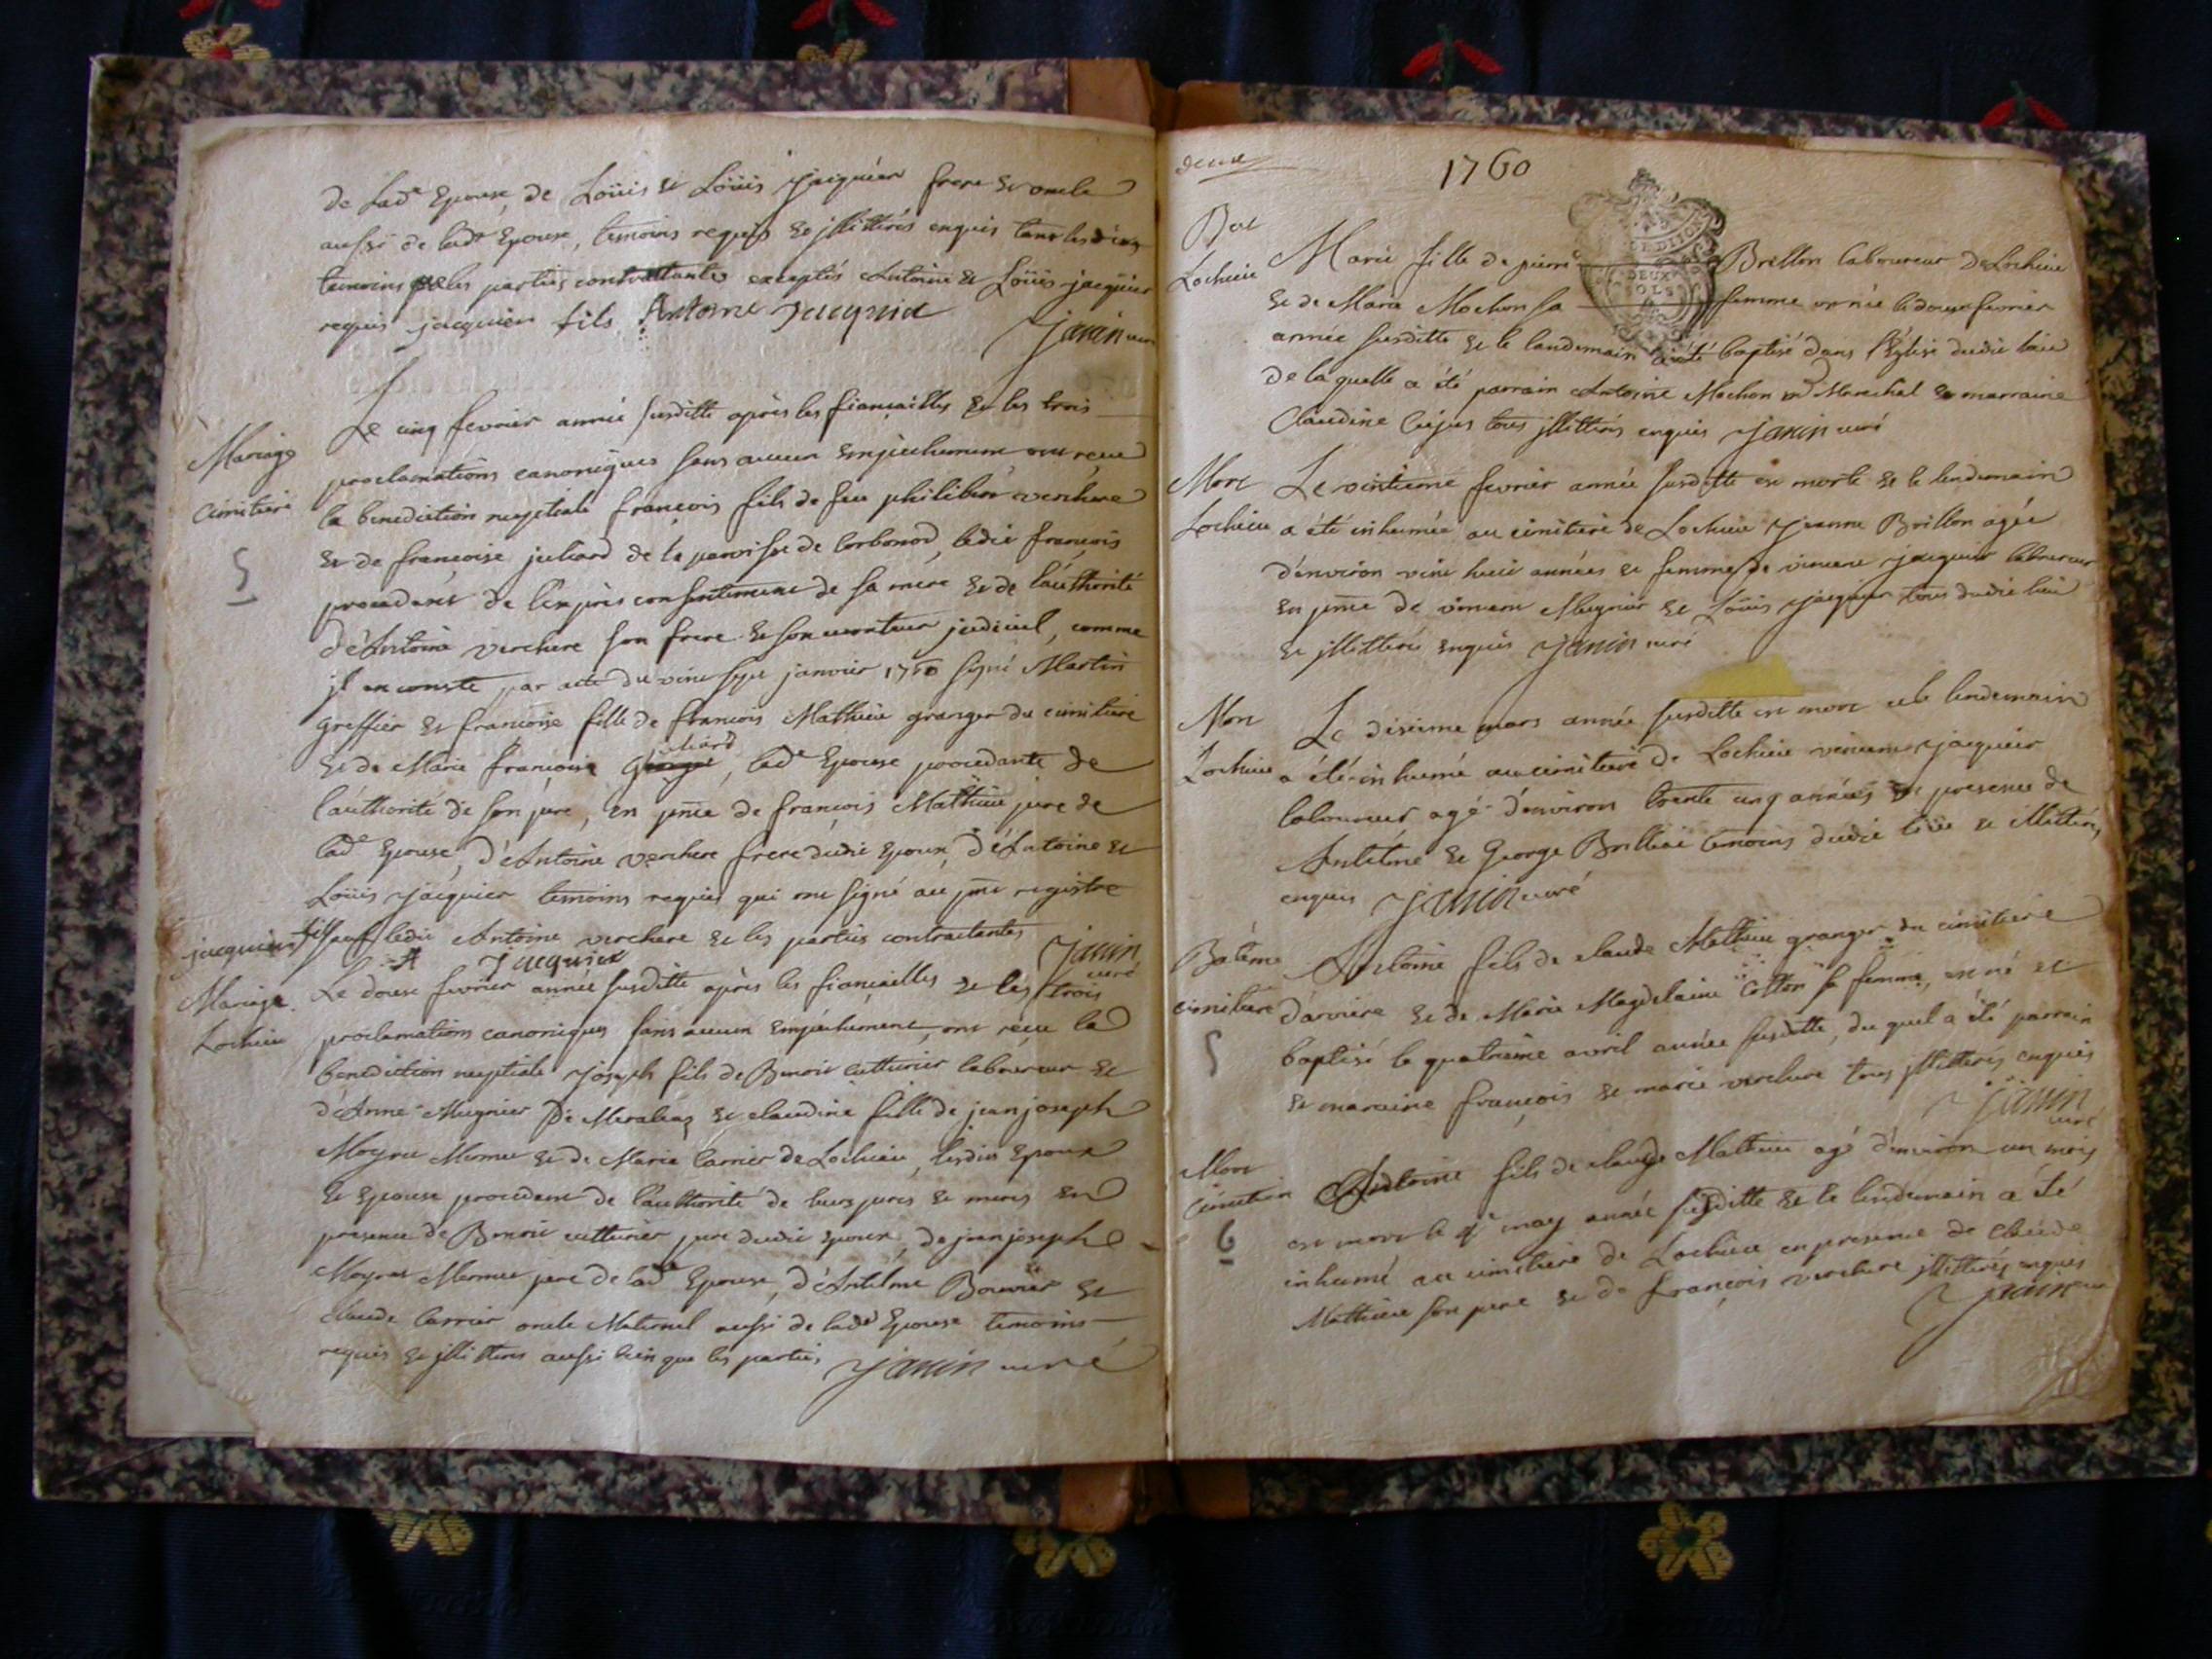 de lad.e Epouse, de Loüis et Loüis jaiquier frere et oncle
aussi de lad.e Epouse, temoins requis et jllitterés enquis tant lesdits
temoins que les parties contrattantes exceptés Antoine et Loüis jacquier
requis jacquier fils Antoine Jacquier
janin curé
Le cinq fevrier année susditte après les fiançailles et les trois
Mariage
proclamations canoniques sans aucun Empechement ont reçu
cimitiere
la benediction nuptiale françois fils de feu philibert verchere
et de françoise juliard de la paroisse de Corbonod, ledit françois
5
procedant de l'exprès consentement de sa mere et de l'authorité
d'Antoine verchere son frere et son curateur judiciel, comme
jl en conste par acte du vint sept janvier 1760 signé Martin
greffier et françoise fille de françois Mathieu granger du cimitiere
juliard
et de Marie françoise, lad.e Epouse procedante de
l'authorité de son pere, en pnce de françois Mathieu pere de
lad.e Epouse, d'Antoine verchere frere dudit Epoux, d'Antoine et
Loüis jacquier temoins requis qui ont signé au pnt registre
jacquier fils sauf ledit Antoine verchere et les parties contractantes
A Jacquier
janin curé
Mariage
Le douse fevrier année susditte après les fiançailles et les trois
Lochieu
proclamations canoniques sans aucun Empechement, ont reçu la
benediction nuptiale joseph fils de Benoit cutturier laboureur et
d'Anne Mugnier de Meraleaz et claudine fille de jean joseph
Moyret Mermet et de Marie Carrier de Lochieu, lesdits Epoux
et Epouse procedant de l'authorité de leurs peres et meres en
presence de Benoit cutturier pere dudit Epoux, de jean joseph
Moyret Mermet pere de lad.e Epouse, d'Antelme Bouvier et
claude Carrier oncle Maternel aussi de lad.e Epouse temoins
requis et jllitterés aussi bien que les parties janin curé
deux
1760
DE DIJON
DEUX
SOLS
Bat
Lochieu
Marie fille de pierre Brillon laboureur de Lochieu
et de Marie Mochon sa femme est née le douse fevrier
année susditte et le landemain a été baptisé dans l'Eglise dudit lieu
de laquelle a été parrain Antoine Mochon Marechal et marraine
Claudine Cujus tous jllitterés enquis janin curé
Mort
Le vintieme fevrier année susditte est morte et le lendemain
Lochieu
a été inhumée au cimitiere de Lochieu jeanne Brillon agée
d'environ vint huit années et femme de vincent jacquier laboureur
en pnce de vincent Mugnier et Loüis jacquier tous dudit lieu
et jllitterés enquis janin curé
Mort
Le disieme mars année susditte est mort et le lendemain
Lochieu
a été inhumé au cimitiere de Lochieu vincent jacquier
laboureur agé d'environ trente cinq années en presence de
Antelme et George Brilliat temoins dudit lieu et illitterés
enquis janin curé
Batême
Antoine fils de claude Mathieu granger du cimitiere
cimitiere
d'arviere et de Marie Magdelaine Cotton sa femme, est né et
5
baptisé le quatrieme avril année susditte, du quel a été parrain
et maraine françois et marie verchere tous jllitterés enquis
janin
curé
Mort
Antoine fils de claude Mathieu agé d'environ un mois
Cimitiere
est mort le 4e may année susditte et le lendemain a été
6
inhumé au cimitiere de Lochieu en presence de claude
Mathieu son pere et de françois verchere jllitterés enquis
janin curé